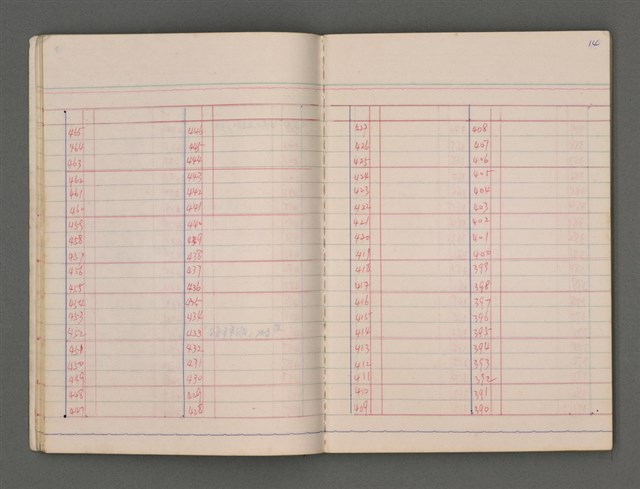 14
465 446
464 445
463 444
462 443
461 442
460 441
459 440
458 439
457 438
456 437
455 436
454 435
453 434
452 433
451 432
450 431
449 430
448 429
447 428
427 408
426 407
425 406
424 405
423 404
422 403
421 402
420 401
419 400
418 399
417 398
416 397
415 396
414 395
413 394
412 393
411 392
410 391
409 390